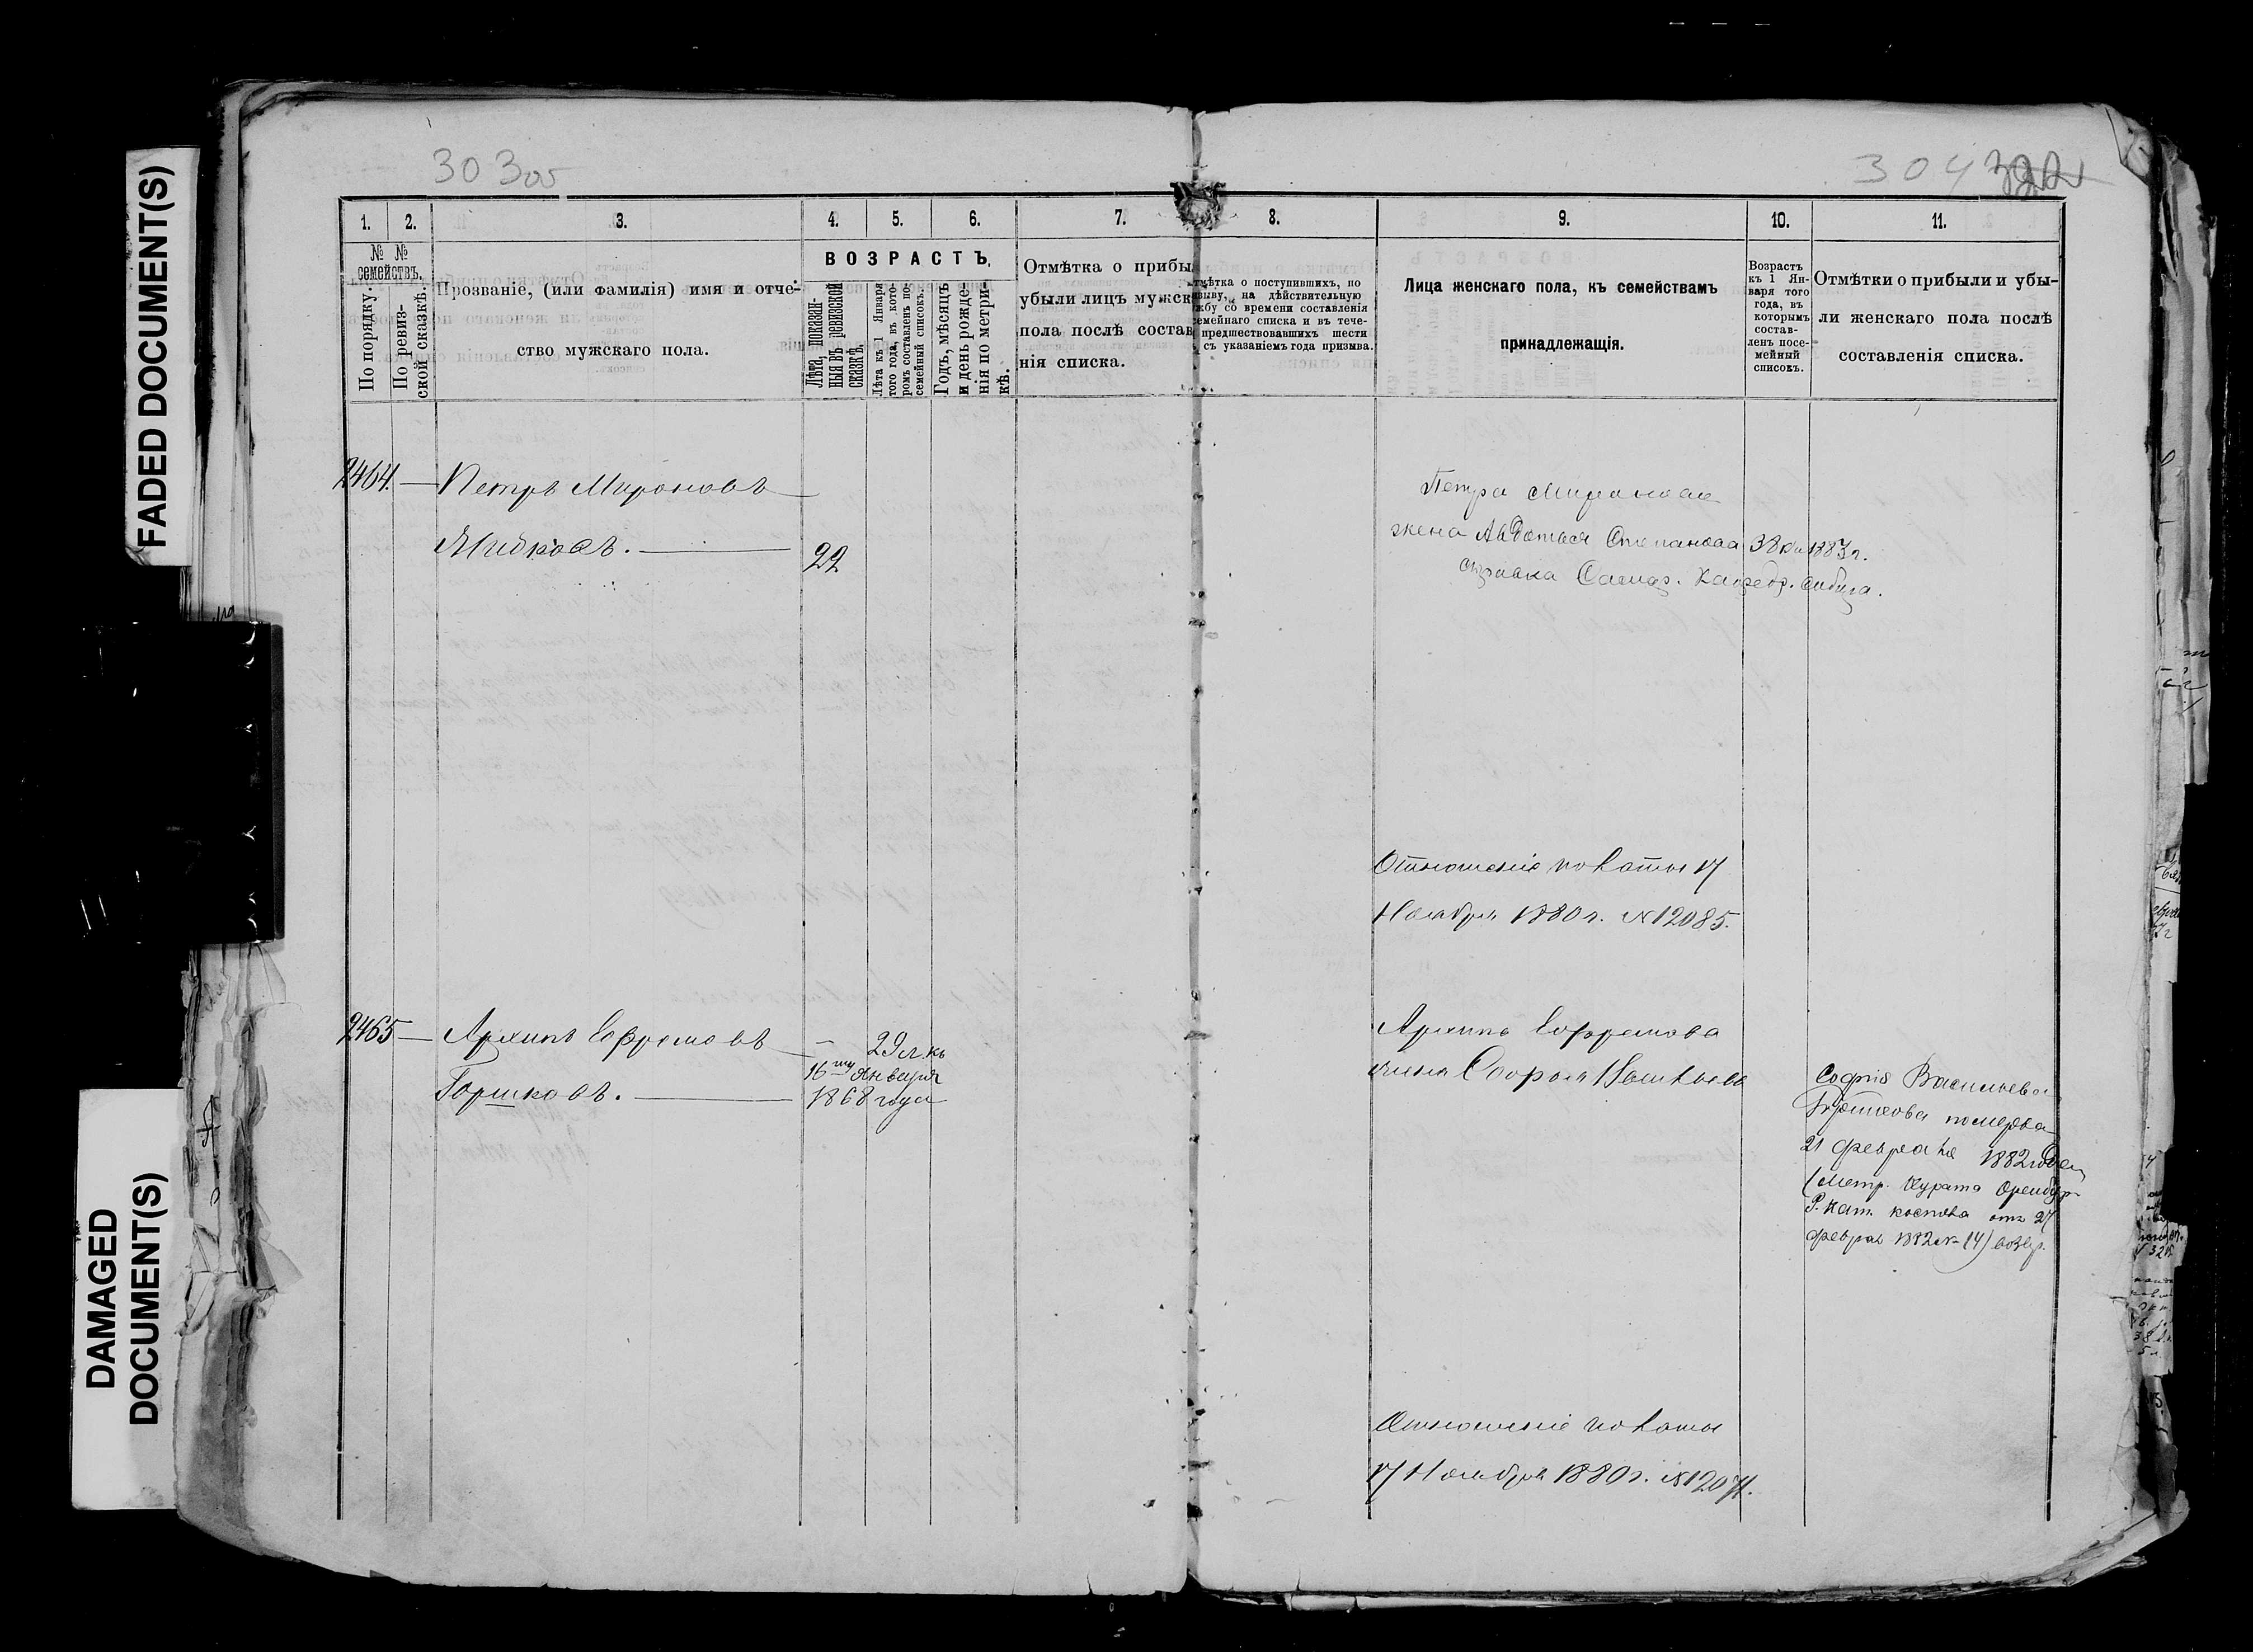 FADED DOCUMENT(S)
DAMAGED
DOCUMENT(S)
303 об
304
1. 2. 3. 4. 5. 6. 7. 8. 9. 10. 11.
№ №
семействъ.
По порядку.
По ревиз-
ской сказкѣ.
Прозваніе, (или фамилія) имя и отче-
ство мужскаго пола.
ВОЗРАСТЪ.
Лѣта, показан-
ныя въ ревизской
сказкѣ.
Лѣта къ 1 Января
того года, въ кото-
ромъ составленъ по-
семейный списокъ.
Годъ, мѣсяцъ
и день рожде-
нія по метри-
кѣ.
Отмѣтка о прибы
убыли лицъ мужск
пола послѣ состав
нія списка.
мѣтка о поступившихъ, по
зыву, на дѣйствительную
жбу со времени составленія
семейнаго списка и въ тече-
предшествовавшихъ шести
съ указаніемъ года призыва.
Лица женскаго пола, къ семействамъ
принадлежащія.
Возрастъ
къ 1 Ян-
варя того
года, въ
которымъ
состав-
ленъ посе-
мейный
списокъ.
Отмѣтки о прибыли и убы-
ли женскаго пола послѣ
составленія списка.
2464. — Петръ Мироновъ —
Жидковъ. — 22
Петра Миронова
жена Авдотья Степанова 38 1883 г.
справка Самар. Кафедр. Собора.
Отношеніе палаты 17
Ноября 1880 г. № 12085.
2465 — Архипъ Ефремовъ — 29 л. къ
16му Января
Горшковъ. — 1868 года
Архипа Ефремова
жена Софья Васильева
Софія Васильева
Горшкова померла
21 февраля 1882 года
(Метр. Курата Оренбур.
Р. Кат. костела отъ 27
февраля 1882 № 14)
Отношеніе палаты
17 Ноября 1880 г. № 12071.